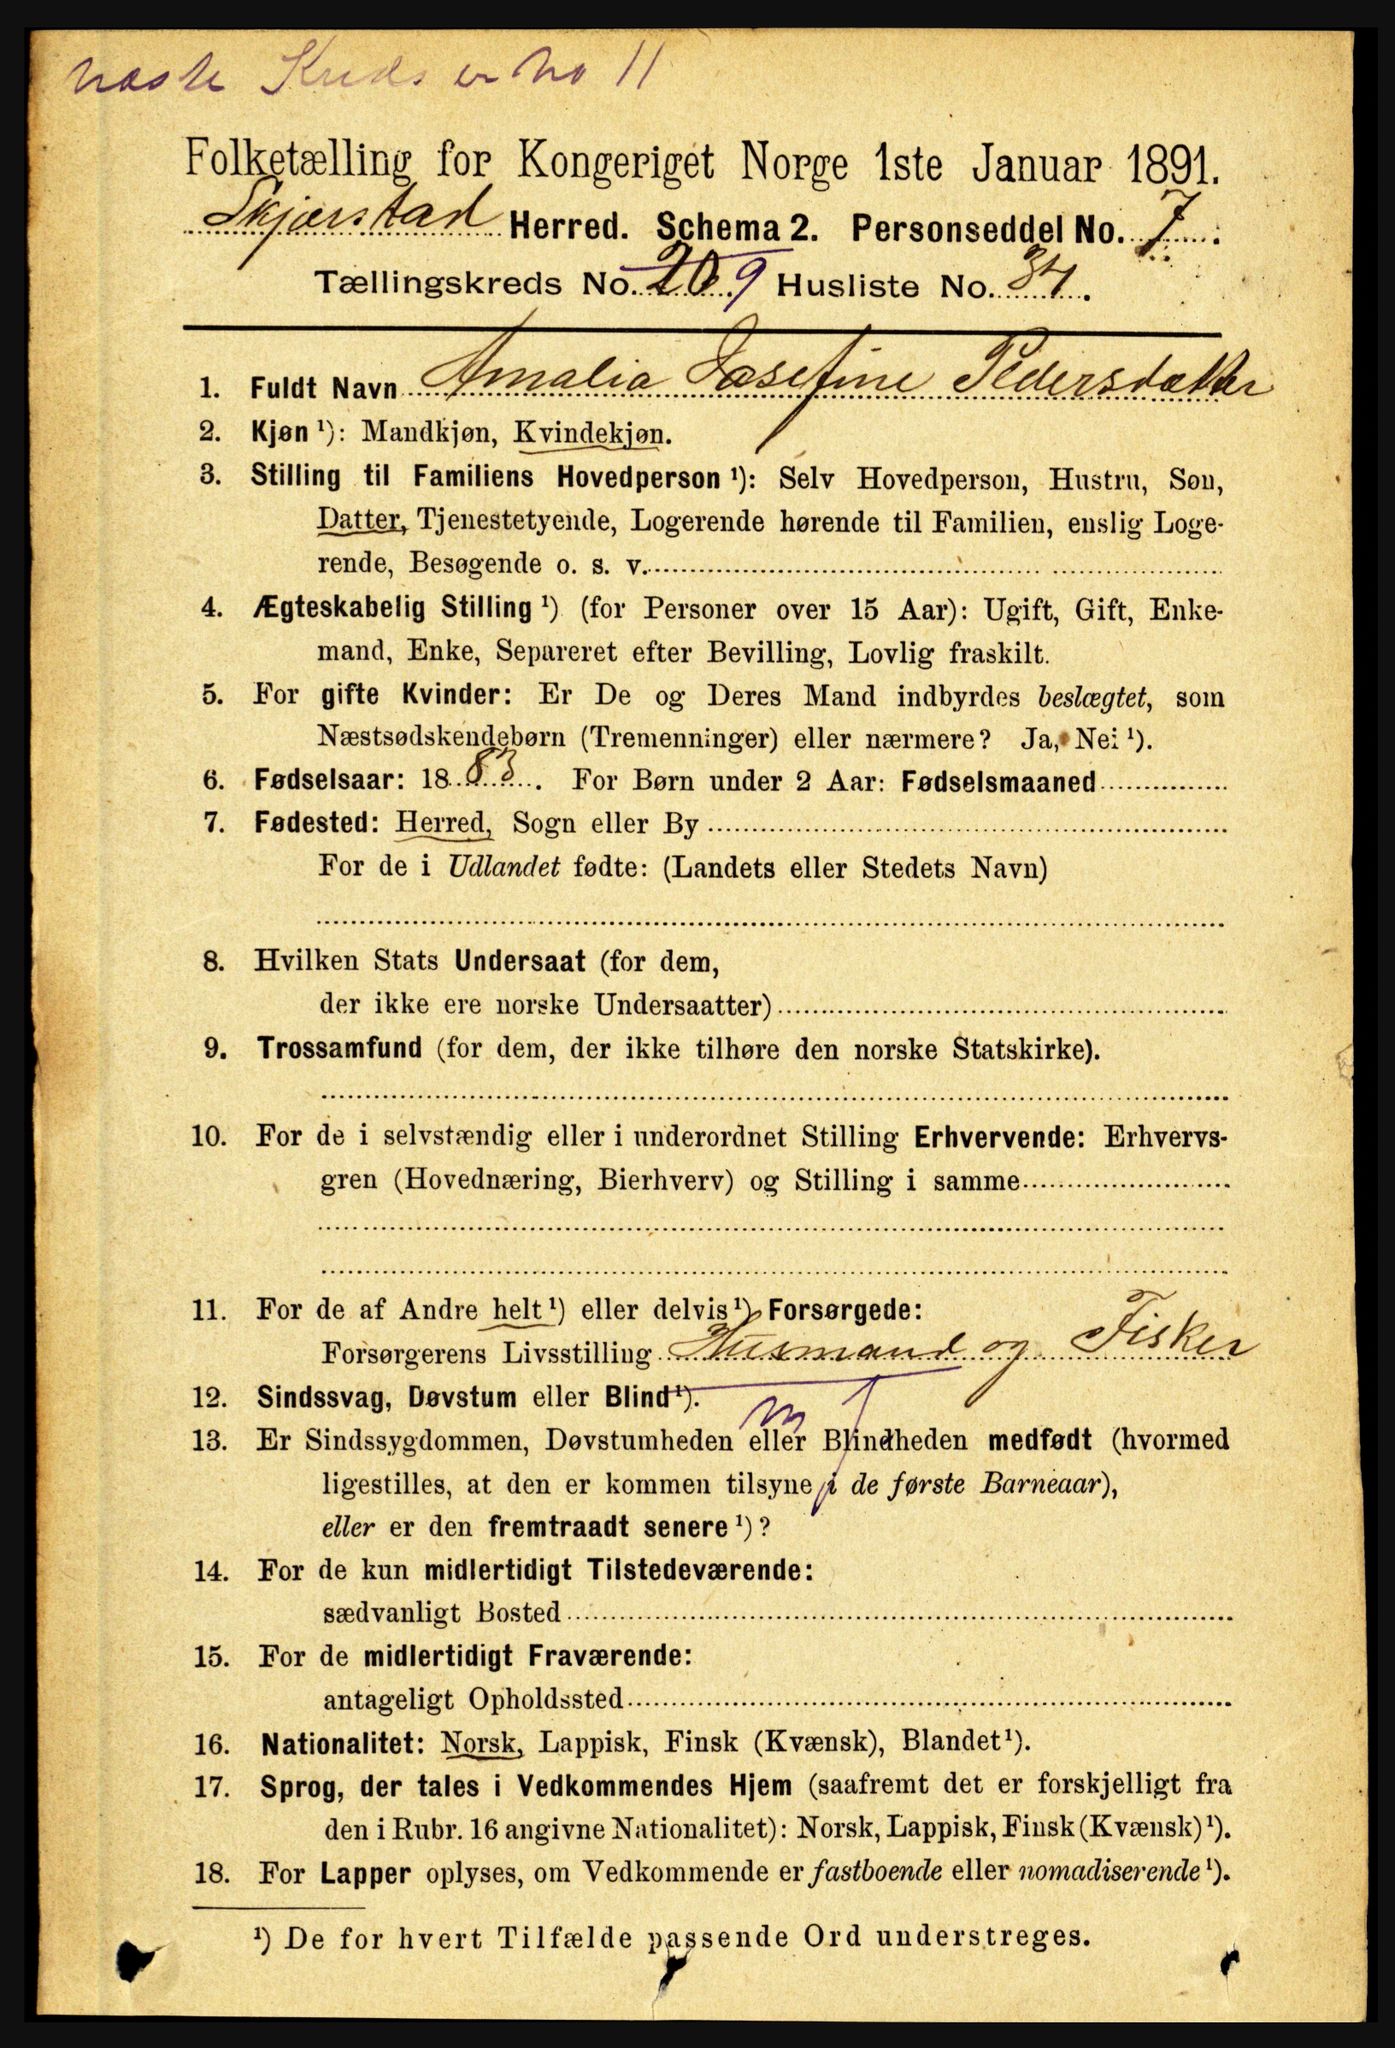 næste Kreds er No 11
Folketælling for Kongeriget Norge 1ste Januar 1891.
Skjærstad Herred. Schema 2. Personseddel No. 7.
Tællingskreds No. 20 9 Husliste No. 34.
1. Fuldt Navn Amalia Josefine Pedersdatter
2. Kjøn ¹): Mandkjøn, Kvindekjøn.
3. Stilling til Familiens Hovedperson ¹): Selv Hovedperson, Hustru, Søn,
Datter, Tjenestetyende, Logerende hørende til Familien, enslig Loge-
rende, Besøgende o. s. v.
4. Ægteskabelig Stilling ¹) (for Personer over 15 Aar): Ugift, Gift, Enke-
mand, Enke, Separeret efter Bevilling, Lovlig fraskilt.
5. For gifte Kvinder: Er De og Deres Mand indbyrdes beslægtet, som
Næstsødskendebørn (Tremenninger) eller nærmere? Ja, Nei ¹).
6. Fødselsaar: 1883. For Børn under 2 Aar: Fødselsmaaned
7. Fødested: Herred, Sogn eller By
For de i Udlandet fødte: (Landets eller Stedets Navn)
8. Hvilken Stats Undersaat (for dem,
der ikke ere norske Undersaatter)
9. Trossamfund (for dem, der ikke tilhøre den norske Statskirke).
10. For de i selvstændig eller i underordnet Stilling Erhvervende: Erhvervs-
gren (Hovednæring, Bierhverv) og Stilling i samme
11. For de af Andre helt ¹) eller delvis ¹) Forsørgede:
Forsørgerens Livsstilling Husmand og Fisker
12. Sindssvag, Døvstum eller Blind ¹).
13. Er Sindssygdommen, Døvstumheden eller Blindheden medfødt (hvormed
ligestilles, at den er kommen tilsyne i de første Barneaar),
eller er den fremtraadt senere ¹)?
14. For de kun midlertidigt Tilstedeværende:
sædvanligt Bosted
15. For de midlertidigt Fraværende:
antageligt Opholdssted
16. Nationalitet: Norsk, Lappisk, Finsk (Kvænsk), Blandet ¹).
17. Sprog, der tales i Vedkommendes Hjem (saafremt det er forskjelligt fra
den i Rubr. 16 angivne Nationalitet): Norsk, Lappisk, Finsk (Kvænsk) ¹).
18. For Lapper oplyses, om Vedkommende er fastboende eller nomadiserende ¹).
¹) De for hvert Tilfælde passende Ord understreges.